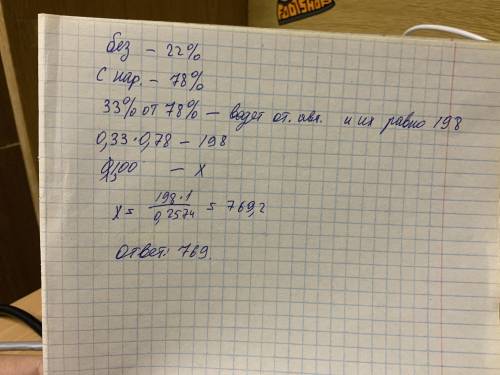 FOOTSHOP
без – 22%
С нар. – 78%
33% от 78% – водят от. авт. и их равно 198
0,33·0,78 – 198
1,00 – х
х = 198·1 / 0,2574 = 769,2
Ответ: 769.